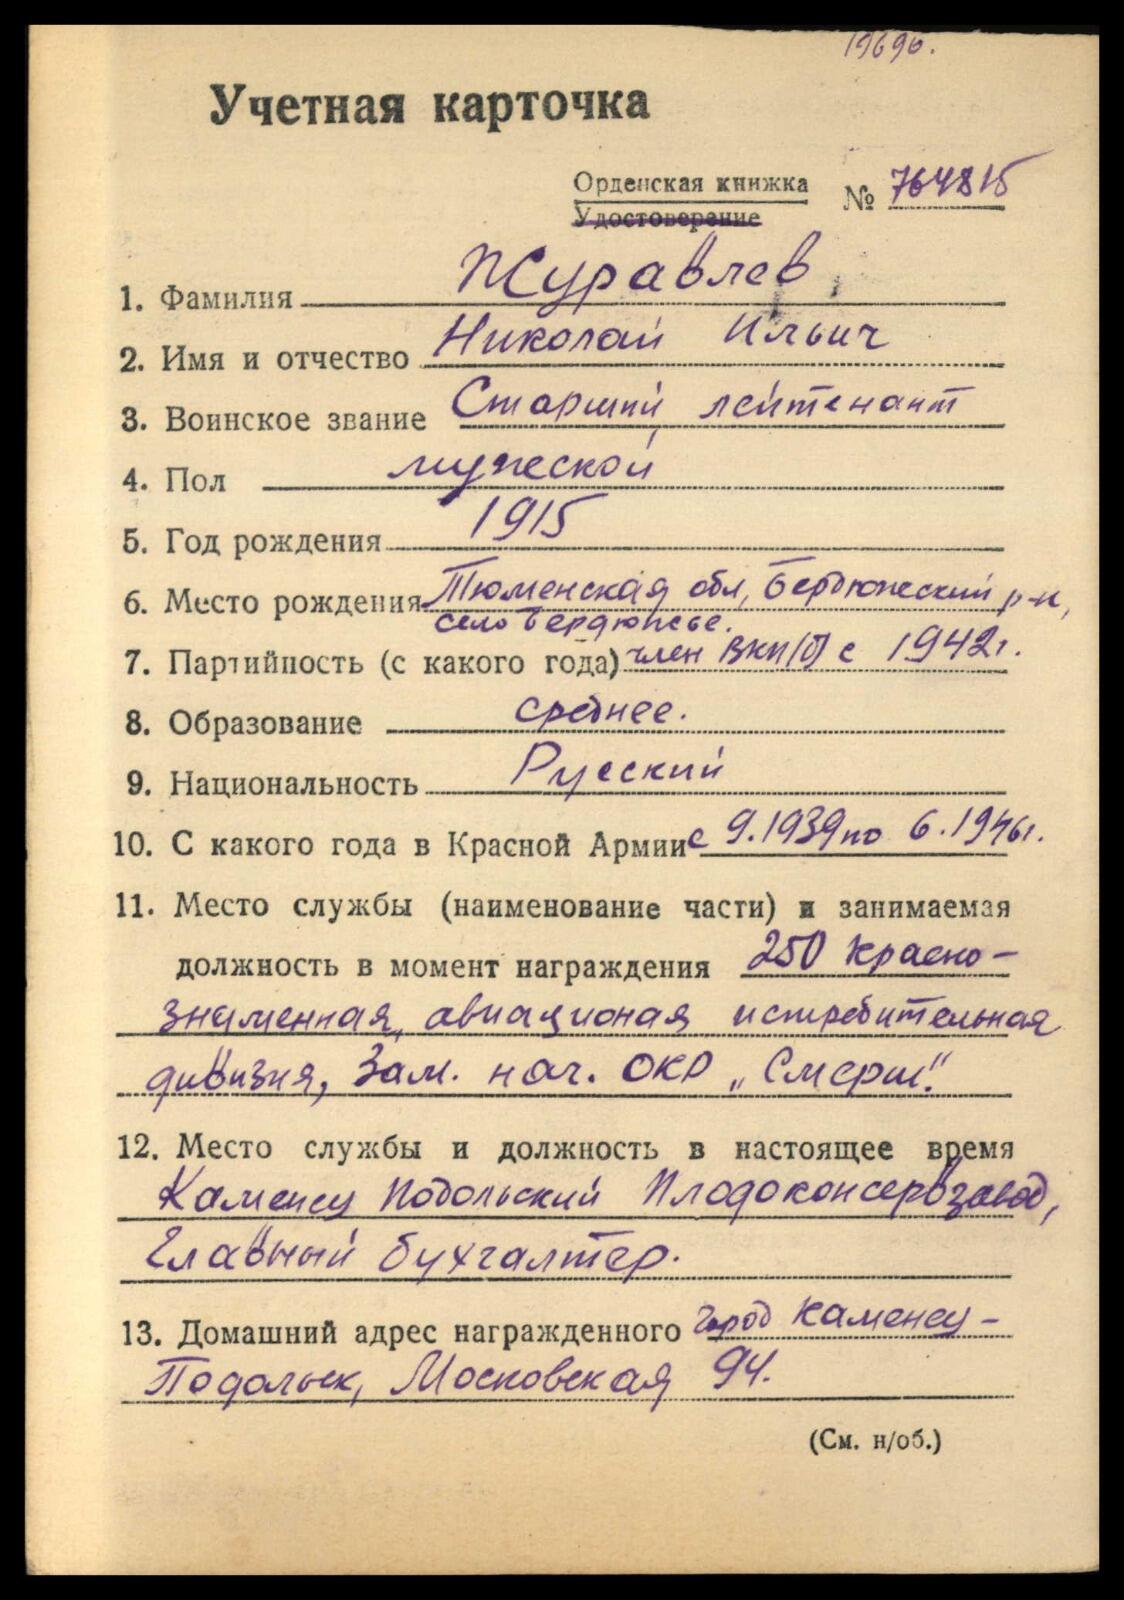 1969г.
Учетная карточка
Орденская книжка № 764815
Удостоверение
1. Фамилия Журавлев
2. Имя и отчество Николай Ильич
3. Воинское звание Старший лейтенант
4. Пол мужской
5. Год рождения 1915
6. Место рождения Тюменская обл, Бердюжский р-н,
село Бердюжье.
7. Партийность (с какого года) член ВКП(б) с 1942г.
8. Образование среднее.
9. Национальность Русский
10. С какого года в Красной Армии с 9.1939 по 6.1946г.
11. Место службы (наименование части) и занимаемая
должность в момент награждения 250 красно-
знаменная, авиационая истребительная
дивизия, Зам. нач. ОКР „Смерш".
12. Место службы и должность в настоящее время
Каменец Подольский Плодоконсервзавод,
Главный бухгалтер.
13. Домашний адрес награжденного город Каменец-
Подольск, Московская 94.
(См. н/об.)